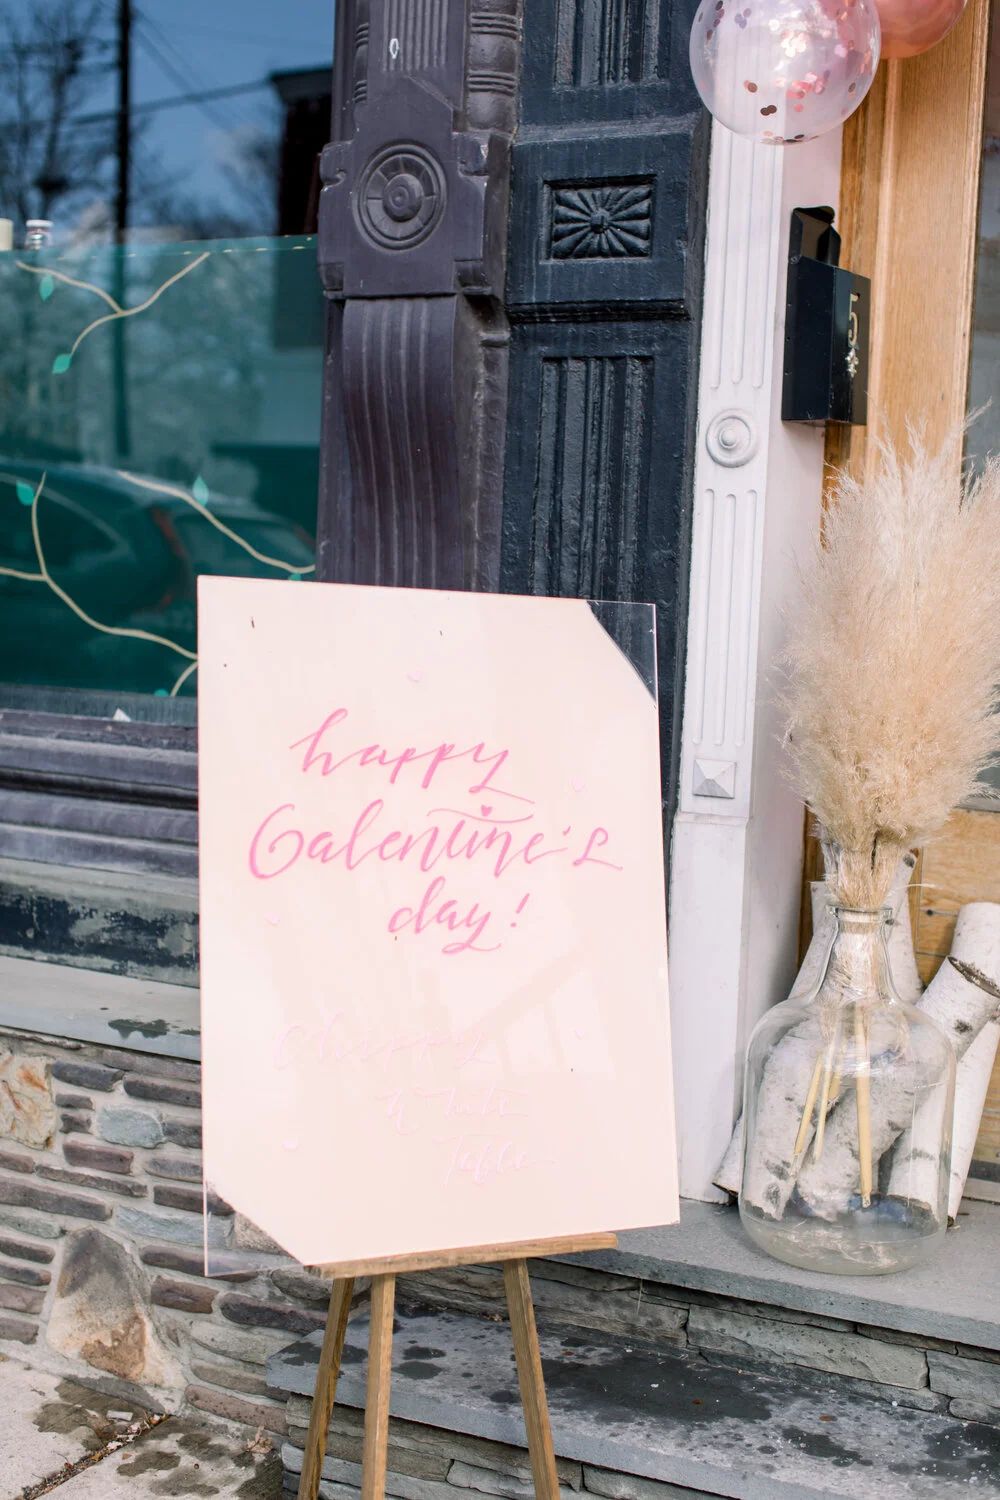 happy
Galentine's
day!
& White
Table
5